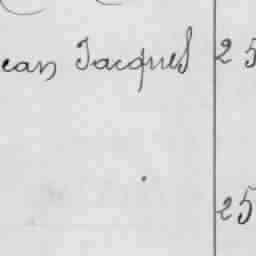 ean Jacques 25
25